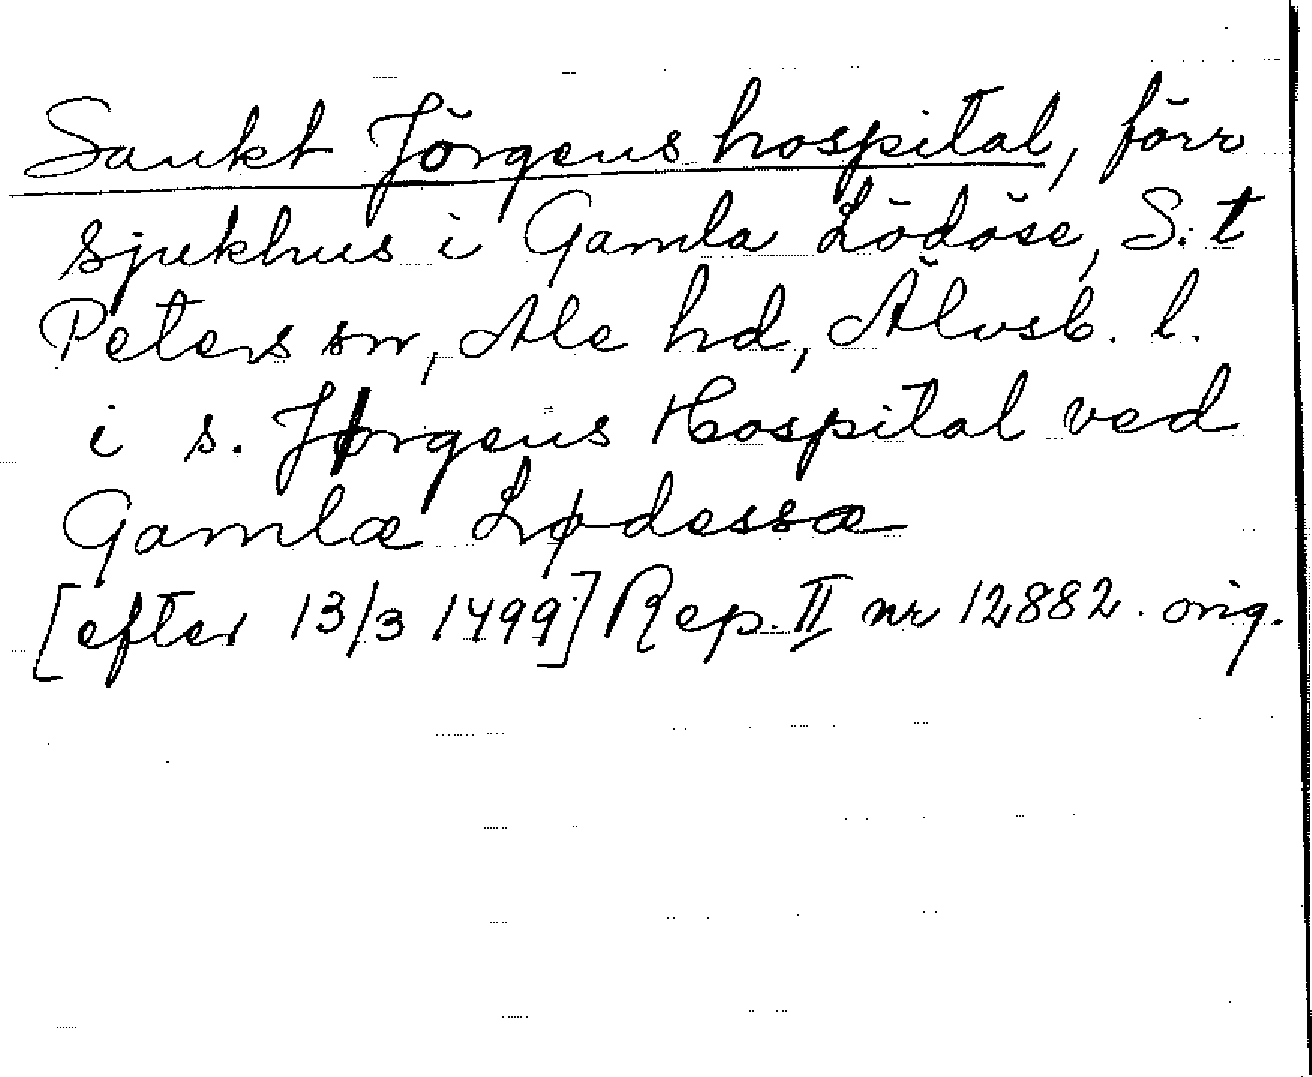 Sankt Jörgens hospital, förr
sjukhus i Gamla Lödöse, S:t
Peters sn, Ale hd, Älvsb. l.
i s. Jørgens Hospital ved
Gamlæ Lødessæ
[efter 13/3 1499] Rep. II nr 12882. orig.